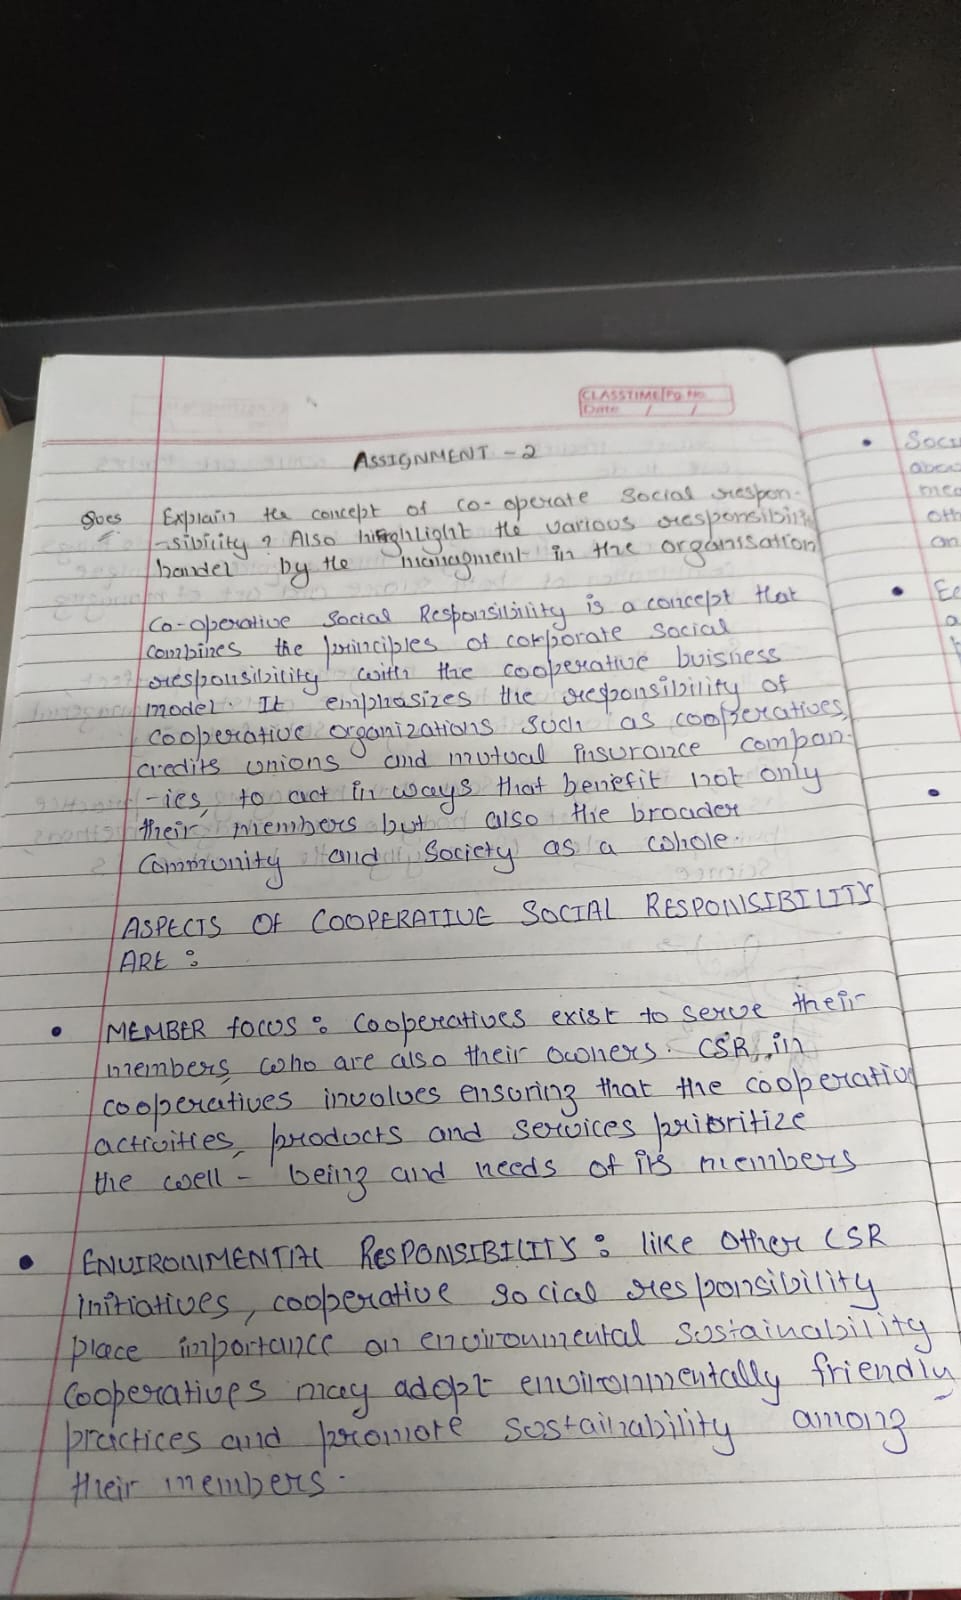 CLASSTIME Pg No.
Date / /
ASSIGNMENT - 2
Ques Explain the concept of co-operate social respon-
-sibility ? Also highlight the various responsibility
handel by the managment in the organisation
Co-operative Social Responsibility is a concept that
combines the principles of corporate social
responsibility with the cooperative buisness
model. It emphasizes the responsibility of
cooperative organizations such as cooperatives,
credits unions and mutual insurance compan-
-ies, to act in ways that benefit not only
their members but also the broader
Community and Society as a whole.
ASPECTS OF COOPERATIVE SOCIAL RESPONSIBILITY
ARE :
• MEMBER focus : Cooperatives exist to serve their
members, who are also their owners. CSR in
cooperatives involves ensuring that the cooperative
activities, products and services prioritize
the well - being and needs of its members
• ENVIRONMENTAL RESPONSIBILITY : like other CSR
initiatives, cooperative social responsibility
place importance on environmental sustainability
Cooperatives may adopt environmentally friendly
practices and promote sustainability among
their members.